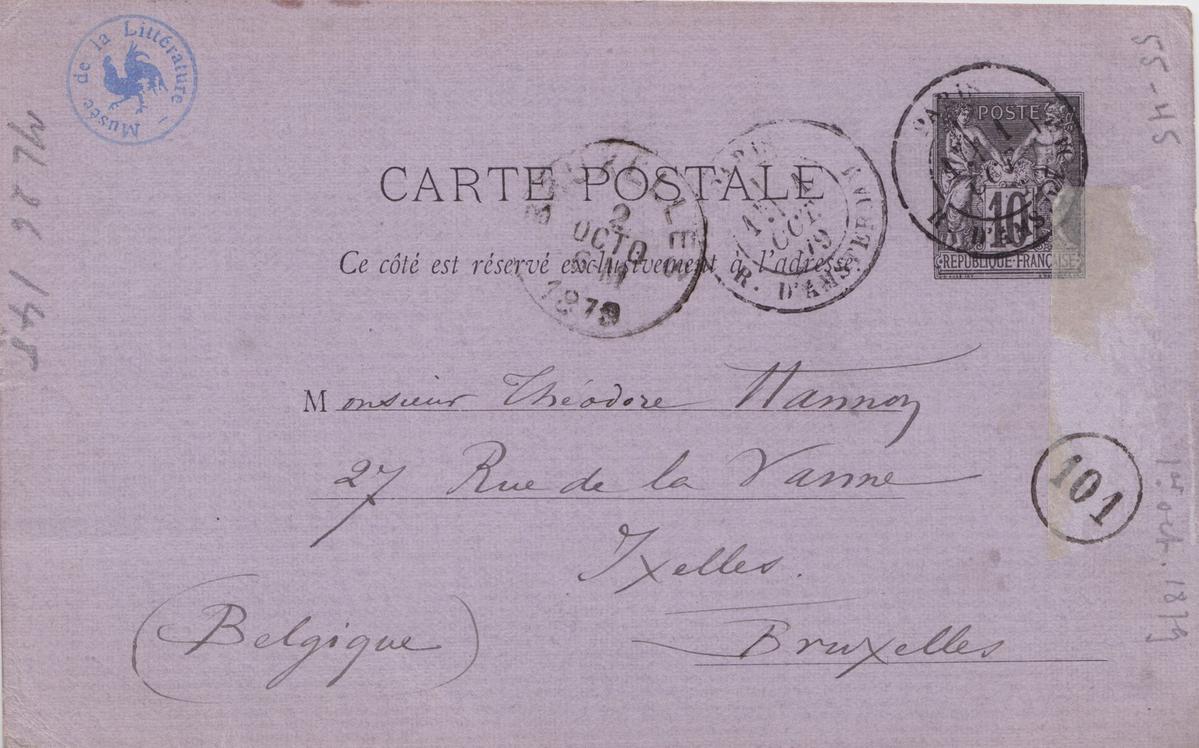 Musée de la Littérature -
ML 26 145
55-45
CARTE POSTALE
Ce côté est réservé exclusivement à l'adresse.
BRUXELLES
2
OCTO
M
1879
PARIS
1
OCT
79
R. D'AMSTERDAM
PARIS
R. D'AMSTERDAM
POSTE
10
REPUBLIQUE FRANCAISE
Monsieur Théodore Hannon
27 Rue de la Vanne
Ixelles.
Bruxelles
(Belgique)
101
1er oct. 1879